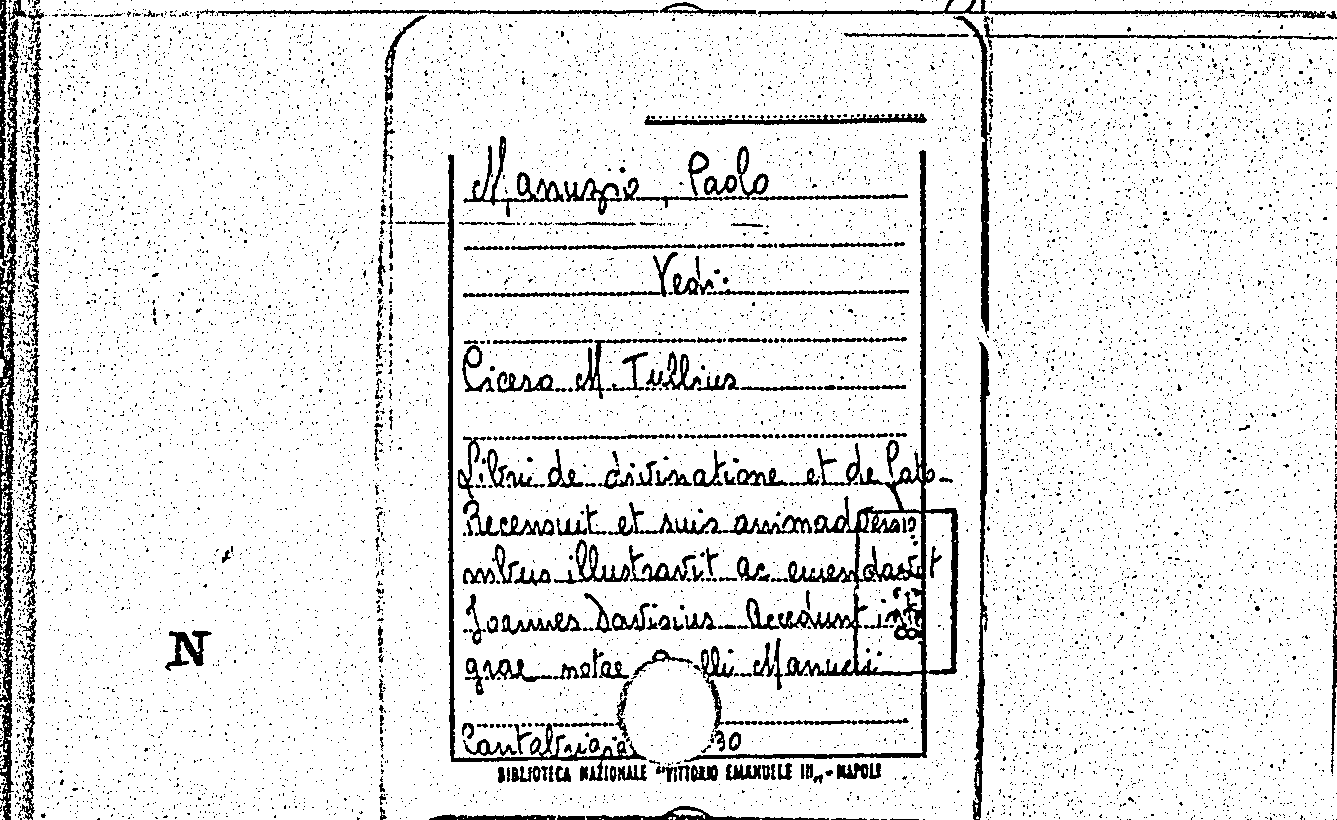 Manuzio, Paolo
Vedi:
Cicero M. Tullius
Libri de divinatione et de fato-
Recensuit et suis animadversio
nibus illustravit ac emendavit
Joannes Davisius Accedunt inte
grae notae Manucii
30
BIBLIOTECA NAZIONALE "VITTORIO EMANUELE III„ - NAPOLI
N